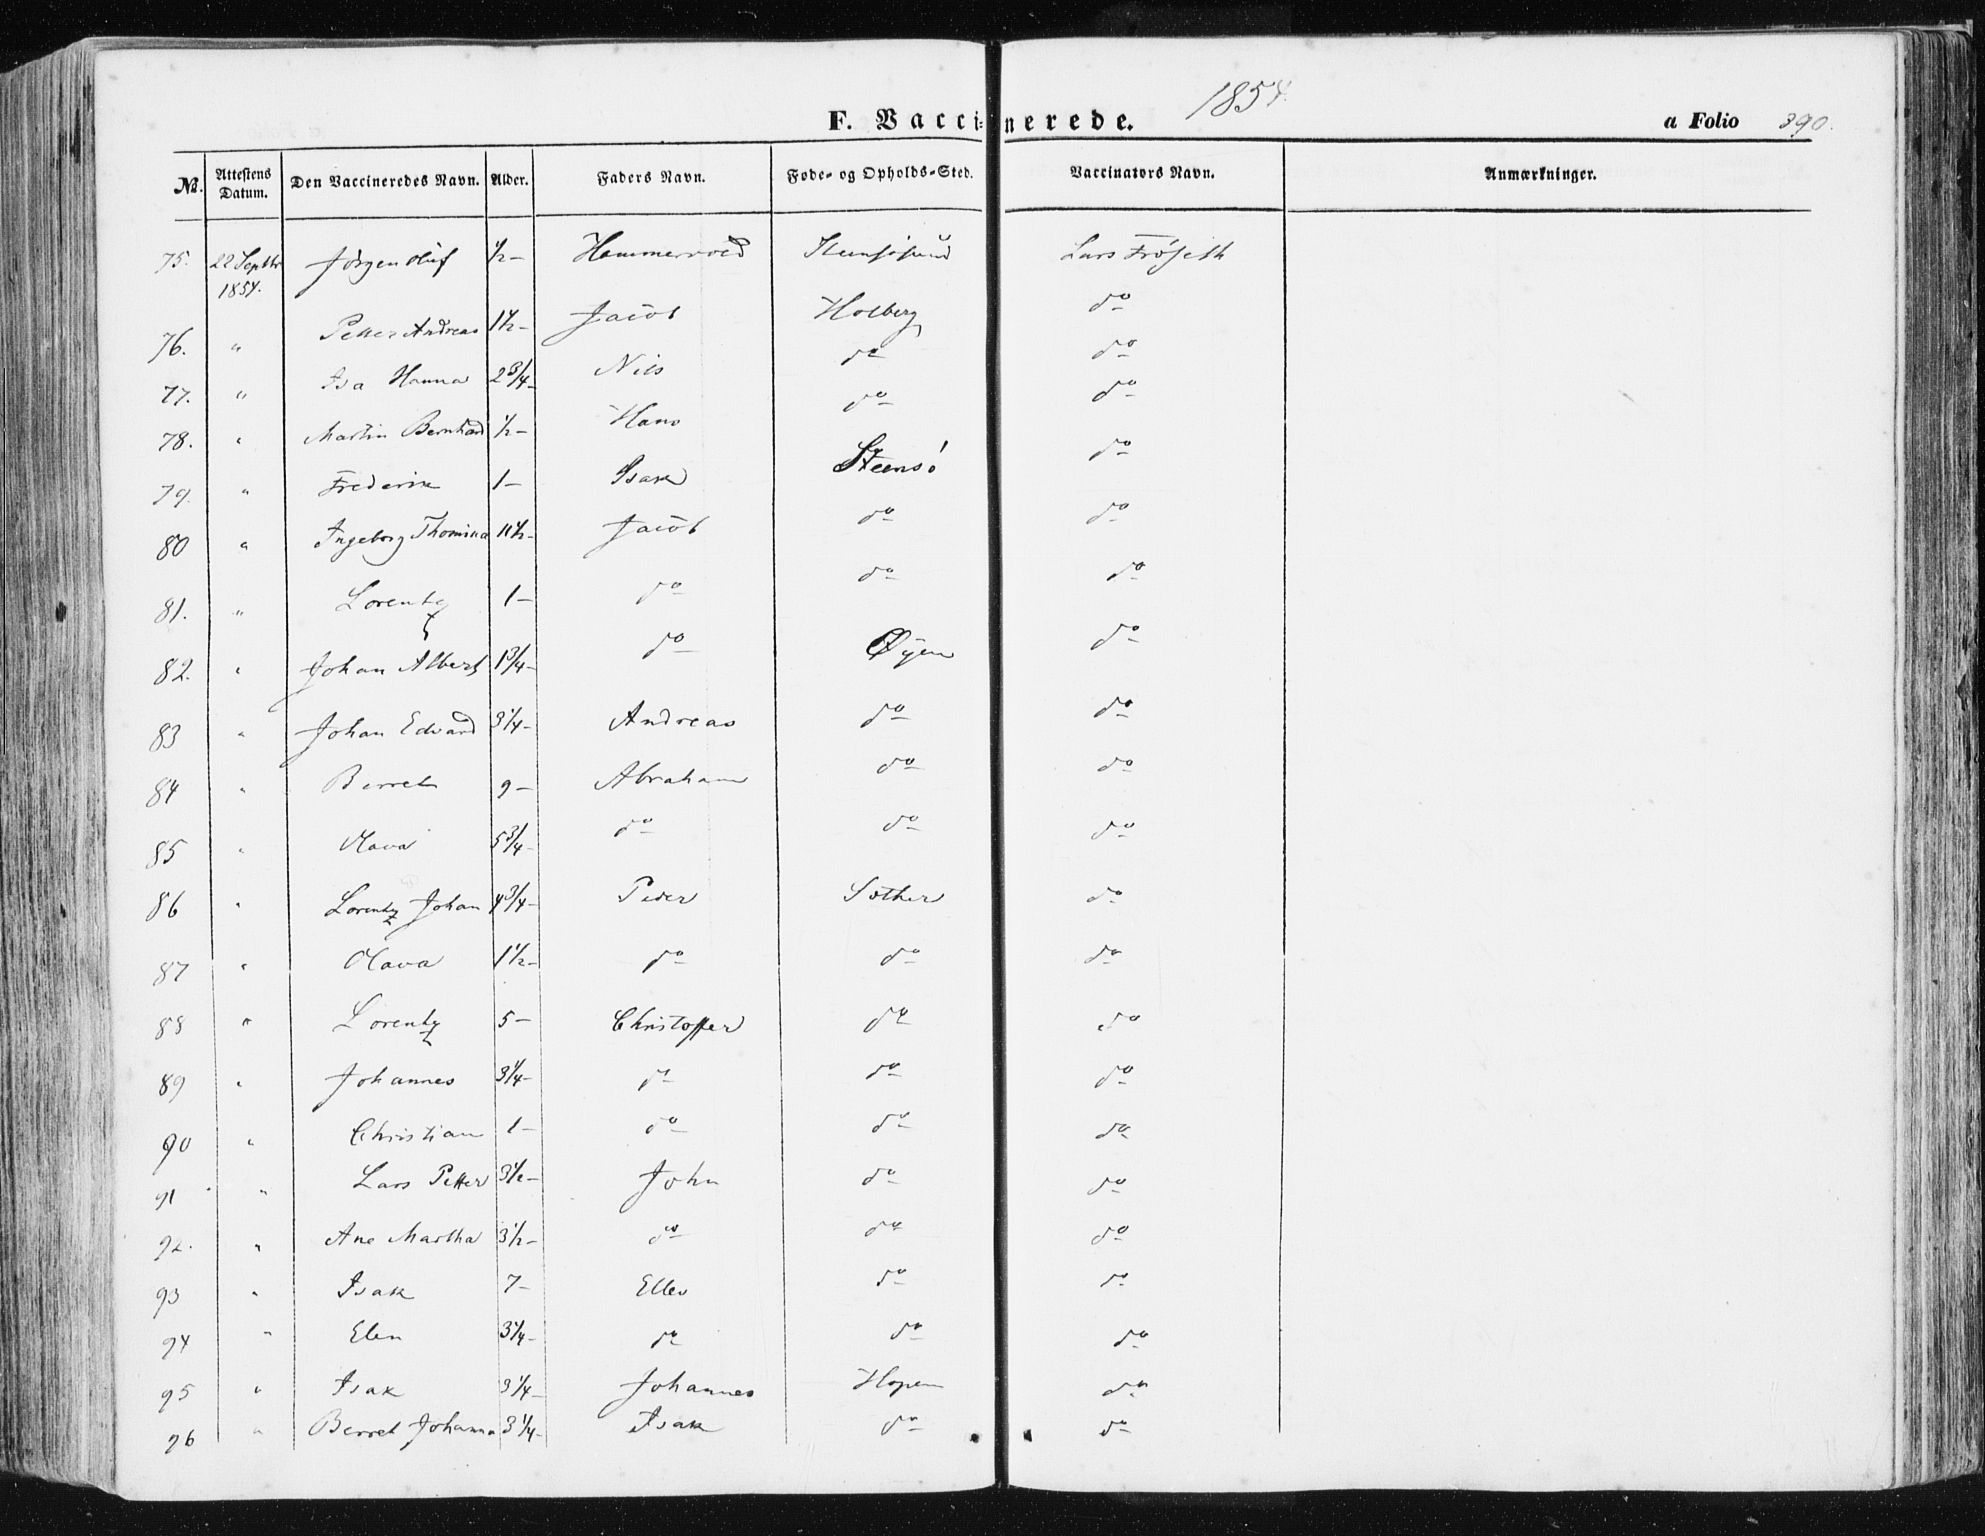 F. Vaccinerede. 1854. a Folio 390.
No. Attestens Datum. Den Vaccineredes Navn. Alder. Faders Navn. Føde- og Opholds-Sted. Vaccinators Navn. Anmærkninger.
75. 22 Septbr 1854. Jørgen Oluf ½ – Hammervold Steensøsund Lars Frøseth
76. " Petter Andreas 1½ – Jacob Holberg do
77. " Isa Hanna 2¾ – Nils do do
78. " Martin Bernhard ½ – Hans do do
79. " Frederik 1 – Isak Steensø do
80 " Ingeborg Thomina 11½ – Jacob do do
81. " Lorentz 1 – do do do
82. " Johan Albert 1¾ – do Øyen do
83 " Johan Edvard 3¼ – Andreas do do
84 " Berret 9 – Abraham do do
85 " Olava 5¾ – do do do
86 " Lorentz Johan 4¾ – Peder Sæther do
87 " Olava 1½ – do do do
88 " Lorentz 5 – Christoffer do do
89 " Johannes 3¼ – do do do
90 " Christian 1 – do do do
91 " Lars Petter 3½ – John do do
92. " Ane Martha 3½ – do do do
93 " Isak 7 – Elles do do
94 " Elen 3¼ – do do do
95 " Isak 3¼ – Johannes Hopen do
96 " Berret Johanna 3¼ – Isak do do